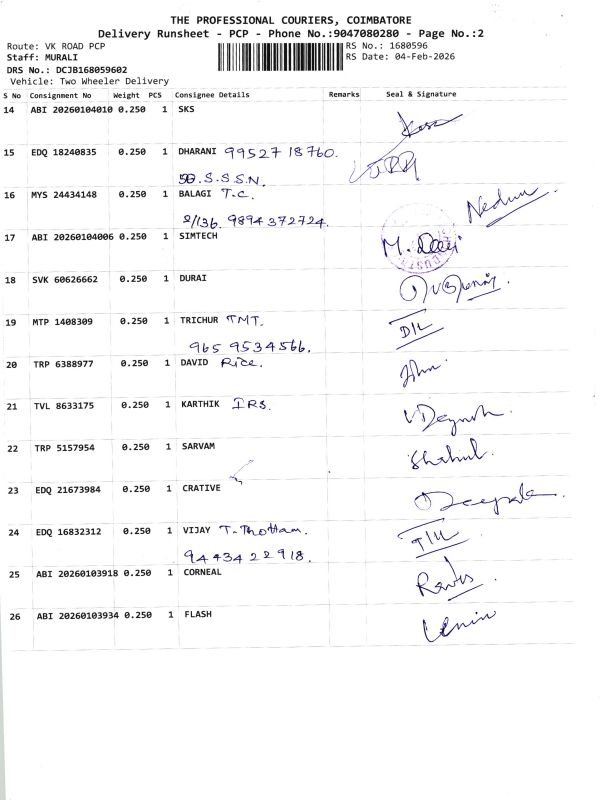 THE PROFESSIONAL COURIERS, COIMBATORE
Delivery Runsheet - PCP - Phone No.:9047080280 - Page No.:2
Route: VK ROAD PCP RS No.: 1680596
Staff: MURALI RS Date: 04-Feb-2026
DRS No.: DCJB168059602
Vehicle: Two Wheeler Delivery
S No Consignment No Weight PCS Consignee Details Remarks Seal & Signature
14 ABI 20260104010 0.250 1 SKS
15 EDQ 18240835 0.250 1 DHARANI 9952718760.
50.S.S.S.N.
16 MYS 24434148 0.250 1 BALAGI T.C. Nedun
2/136. 9894372724.
17 ABI 20260104006 0.250 1 SIMTECH M. Devi
18 SVK 60626662 0.250 1 DURAI
19 MTP 1408309 0.250 1 TRICHUR TMT. D/L
965 9534566.
20 TRP 6388977 0.250 1 DAVID Rice. John
21 TVL 8633175 0.250 1 KARTHIK IRS.
22 TRP 5157954 0.250 1 SARVAM Shahul.
23 EDQ 21673984 0.250 1 CRATIVE Deepala
24 EDQ 16832312 0.250 1 VIJAY T. Thottam. T/L
9443422918.
25 ABI 20260103918 0.250 1 CORNEAL
26 ABI 20260103934 0.250 1 FLASH Lenin